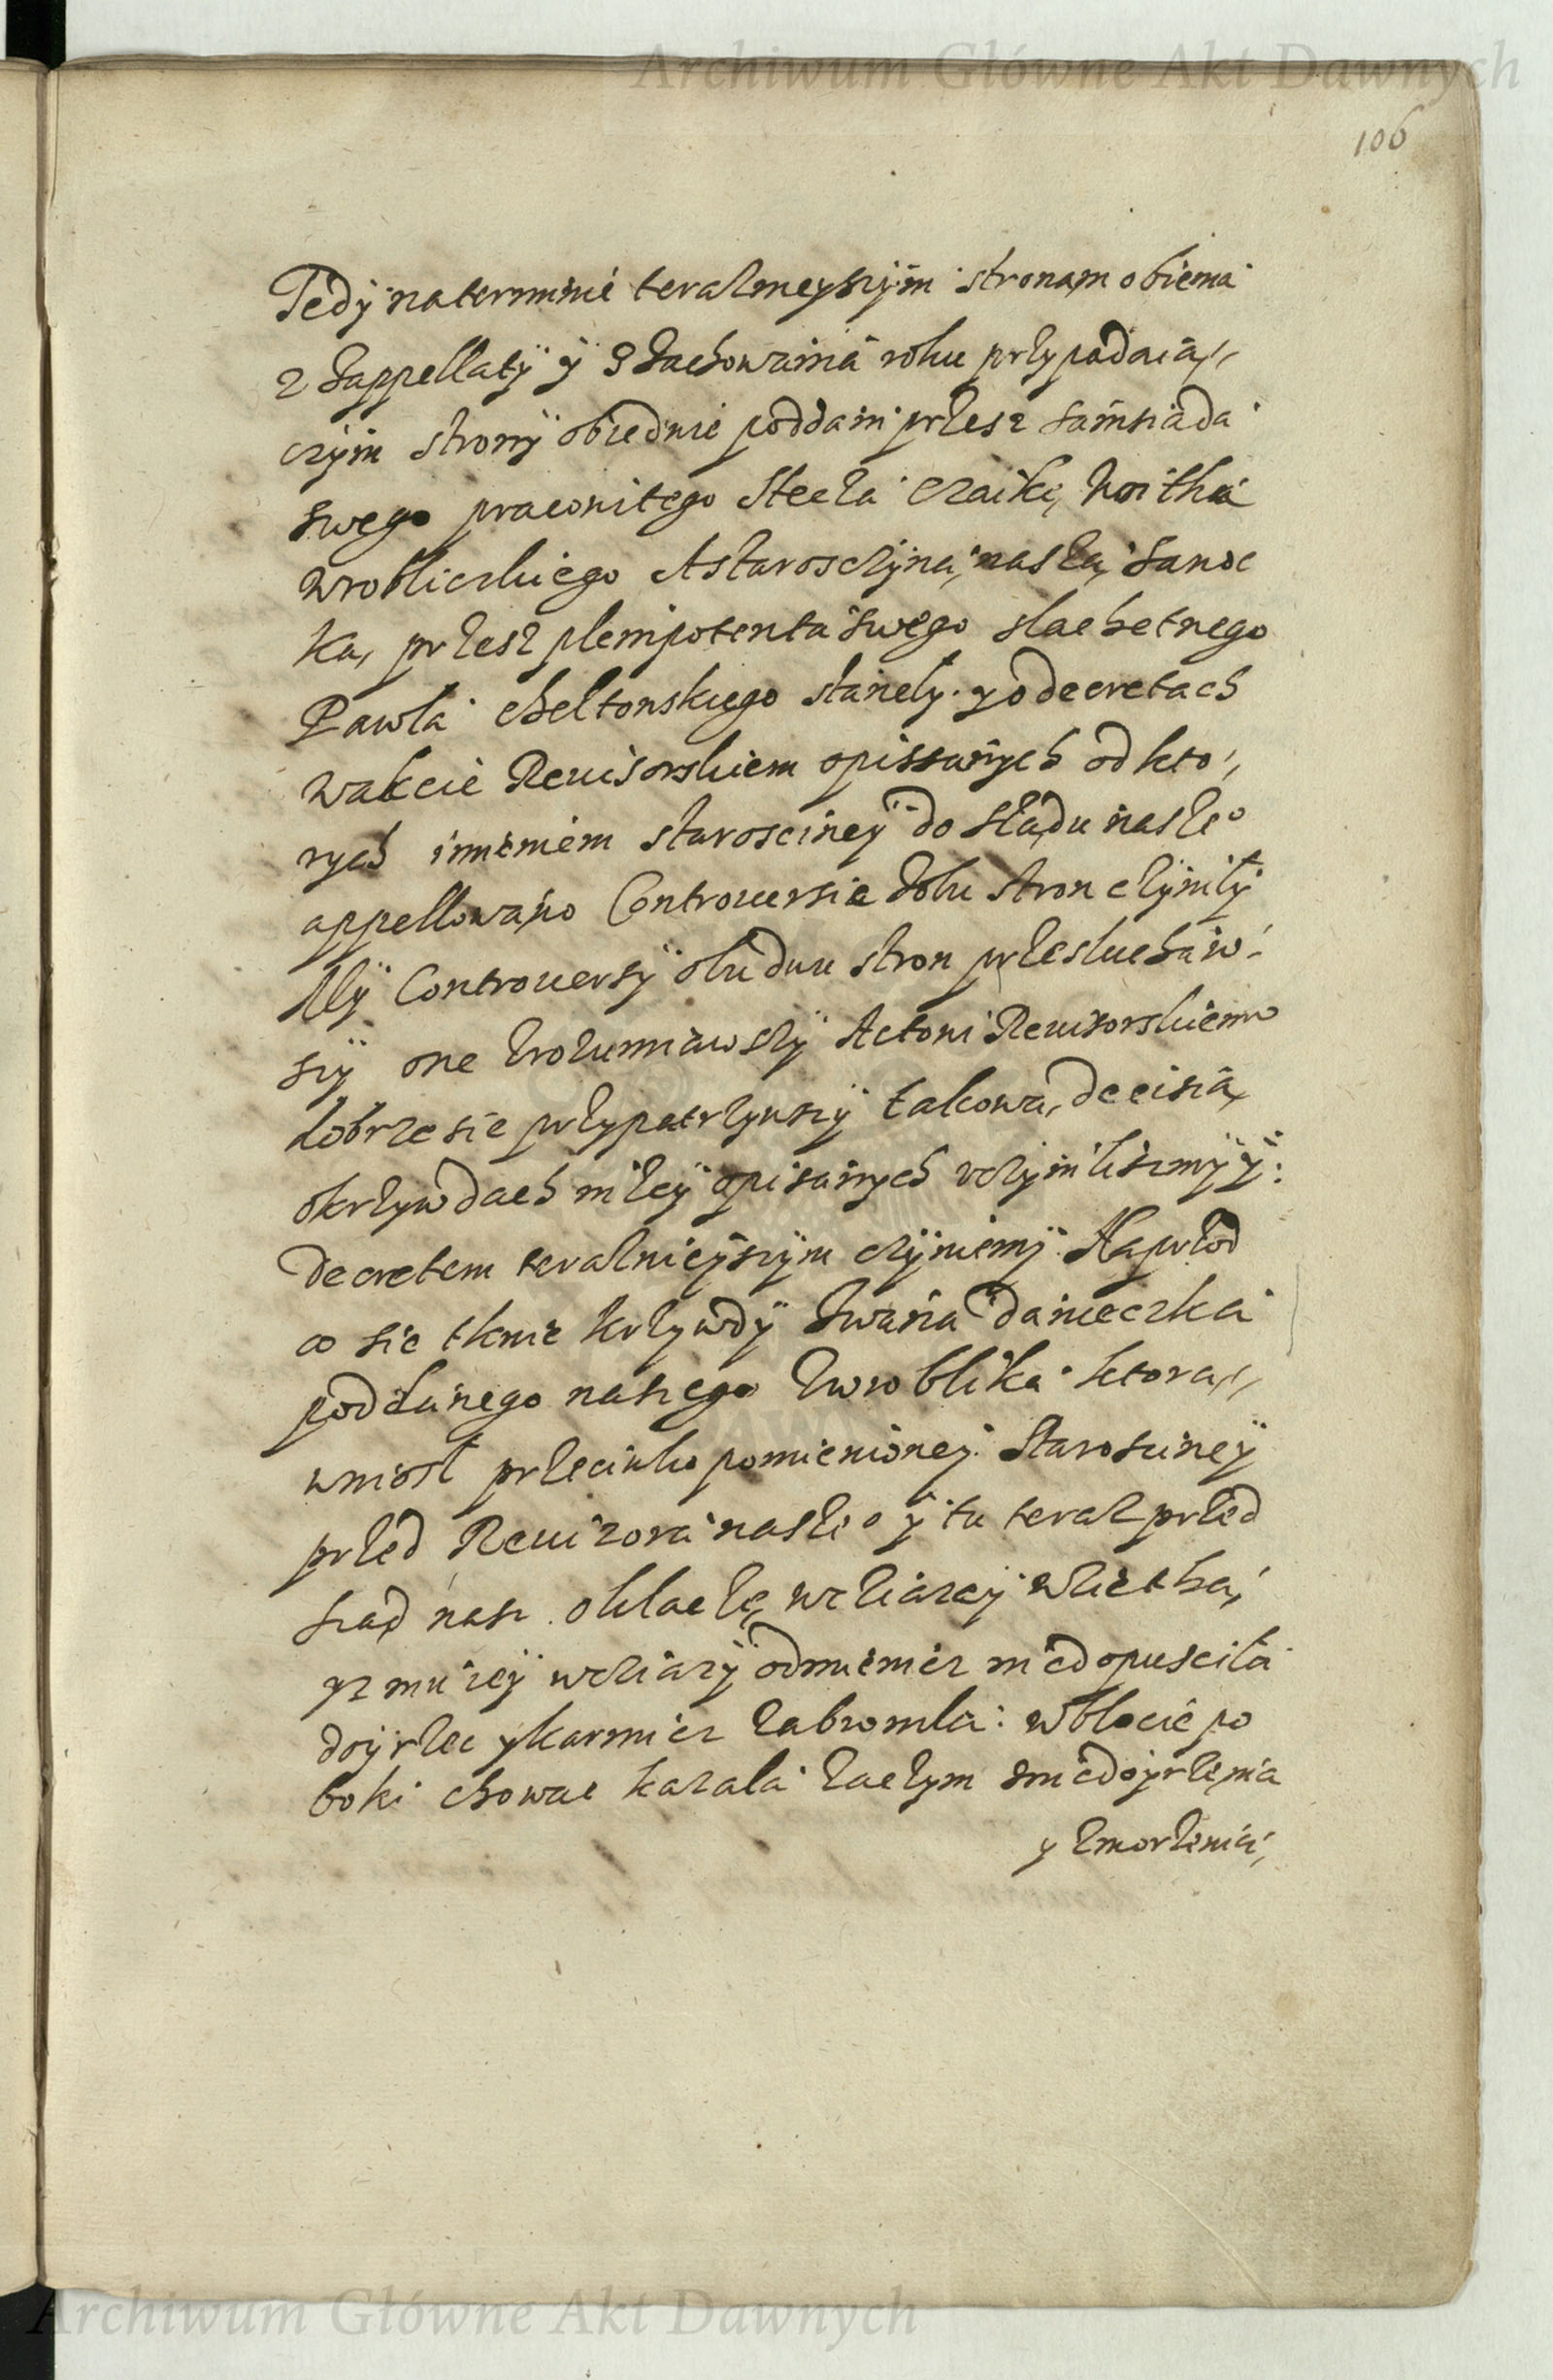 Archiwum Główne Akt Dawnych
106
Tedÿ na terminie terazneyszÿm stronam obiema
z zappellatÿ ÿ zachowania roku przypadaią,,
czÿm stronÿ obiednie poddani przesz sąmsiada
swego pracowitego Steca Czaikę, woitha
wroblickiego A starosczÿna, naszą, sanoc
ką, przesz plenipotenta swego slachetnego
Pawła cheltonskiego stanelÿ. y o decretach
w akcie Reuisorskiem opissanÿch od kto,,
rych imieniem starosciney do sządu naszeo
appellowano Controuersie z obu stron czÿnilÿ
Mÿ Controuersÿ obudwu stron przesłuchaw
szÿ one zrozumiawszÿ Actowi Reuizorskiemu
dobrze sie przypatrzÿwszÿ takową, decisią,
o krzywdach nizeÿ opisanÿch vczÿnilismÿ ÿ
decretem teraznieÿszÿm czÿniemÿ. Naprzod
co sie tknie krzywdÿ Iwana danieczka
poddanego naszego zwroblika ktorą,,
wniosł przeciwko pomienioneÿ Starosciney
przed Reuizora naszeo ÿ tu teraz przed
sząd nasz o klaczę, w cziązeÿ wziethą,
yz mu ieÿ w cziązÿ odmieniez niedopuscila
doÿrzec y karmiez zabroniła: w błocie po
boki chowac kazala zaczym z niedoÿrzenia
y zmorzenia,
Archiwum Główne Akt Dawnych